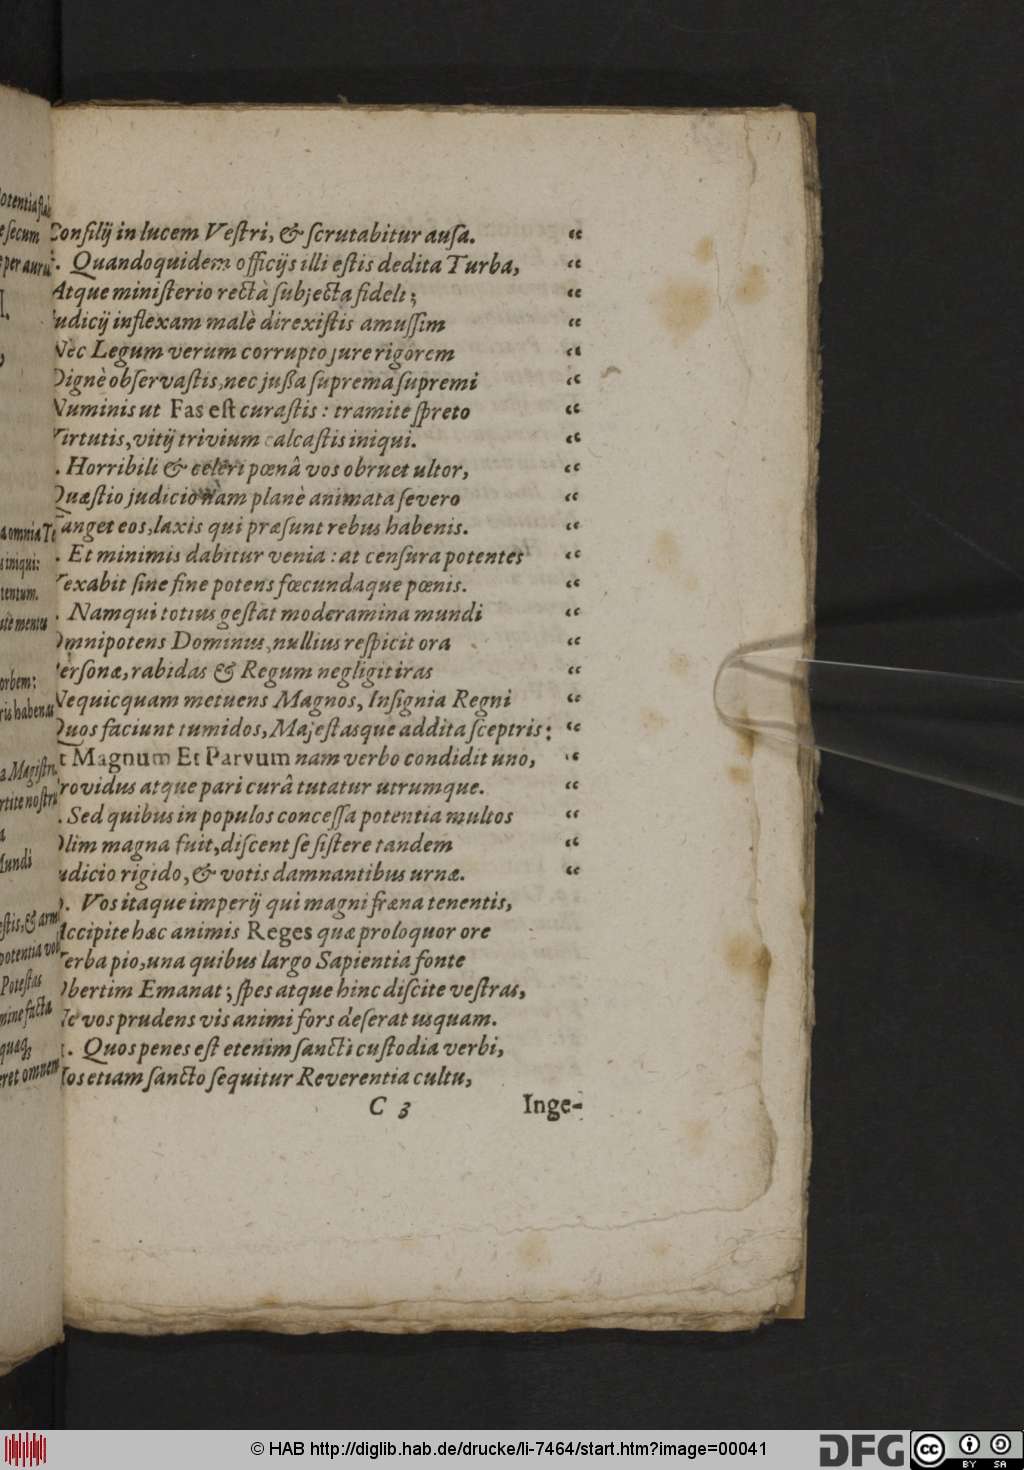 Consilij in lucem Veſtri, & ſcrutabitur auſa. “
Quandoquidem officijs illi eſtis dedita Turba, “
Atque miniſterio rectà ſubjecta fideli; “
udicij inflexam malè direxiſtis amuſſim “
Nec Legum verum corrupto jure rigorem “
Dignè obſervaſtis, nec juſſa ſuprema ſupremi “
Numinis ut Fas eſt curaſtis: tramite ſpreto “
Virtutis, vitij trivium calcaſtis iniqui. “
. Horribili & celeri pœnâ vos obruet ultor, “
Quæſtio judicio nam planè animata ſevero “
Tanget eos, laxis qui præſunt rebus habenis. “
. Et minimis dabitur venia: at cenſura potentes “
Vexabit ſine fine potens fœcundaque pœnis. “
. Namqui totius geſtat moderamina mundi “
Omnipotens Dominus, nullius reſpicit ora “
Perſonæ, rabidas & Regum negligit iras “
Nequicquam metuens Magnos, Inſignia Regni “
Quos faciunt tumidos, Majeſtasque addita ſceptris: “
t Magnum Et Parvum nam verbo condidit uno, “
Providus atque pari curâ tutatur utrumque. “
. Sed quibus in populos conceſſa potentia multos “
Olim magna fuit, diſcent ſe ſiſtere tandem “
udicio rigido, & votis damnantibus urnæ. “
. Vos itaque imperij qui magni fræna tenentis,
Accipite hæc animis Reges quæ proloquor ore
Verba pio, una quibus largo Sapientia fonte
Obertim Emanat; ſpes atque hinc diſcite veſtras,
Ne vos prudens vis animi fors deſerat usquam.
. Quos penes eſt etenim ſancti cuſtodia verbi,
Hos etiam ſancto ſequitur Reverentia cultu,
C 3 Inge-
© HAB http://diglib.hab.de/drucke/li-7464/start.htm?image=00041
DFG
cc BY SA